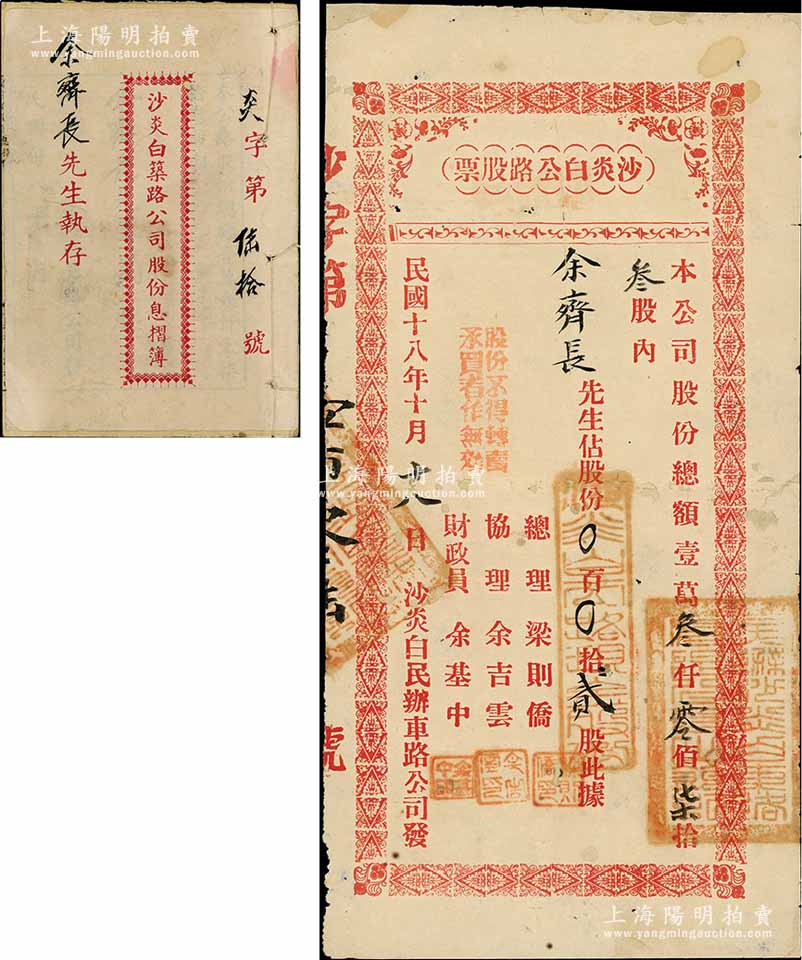 上海陽明拍賣
www.yangmingauction.com
炎字第 伍拾 號
沙炎白築路公司股份息摺簿
余齊長先生執存
上海陽明拍賣
www.yangmingauction.com
(沙炎白公路股票)
本公司股份總額壹萬叁仟零佰柒拾
叁股內
余齊長先生佔股份0百0拾貳股此據
股份不得轉賣
承買者作無效
總理 梁則僑
協理 余吉雲
財政員 余基中
民國十八年十月十八日 沙炎白民辦車路公司發
沙字第
號
上海陽明拍賣
www.yangmingauction.com
上海陽明拍賣
www.yangmingauction.com